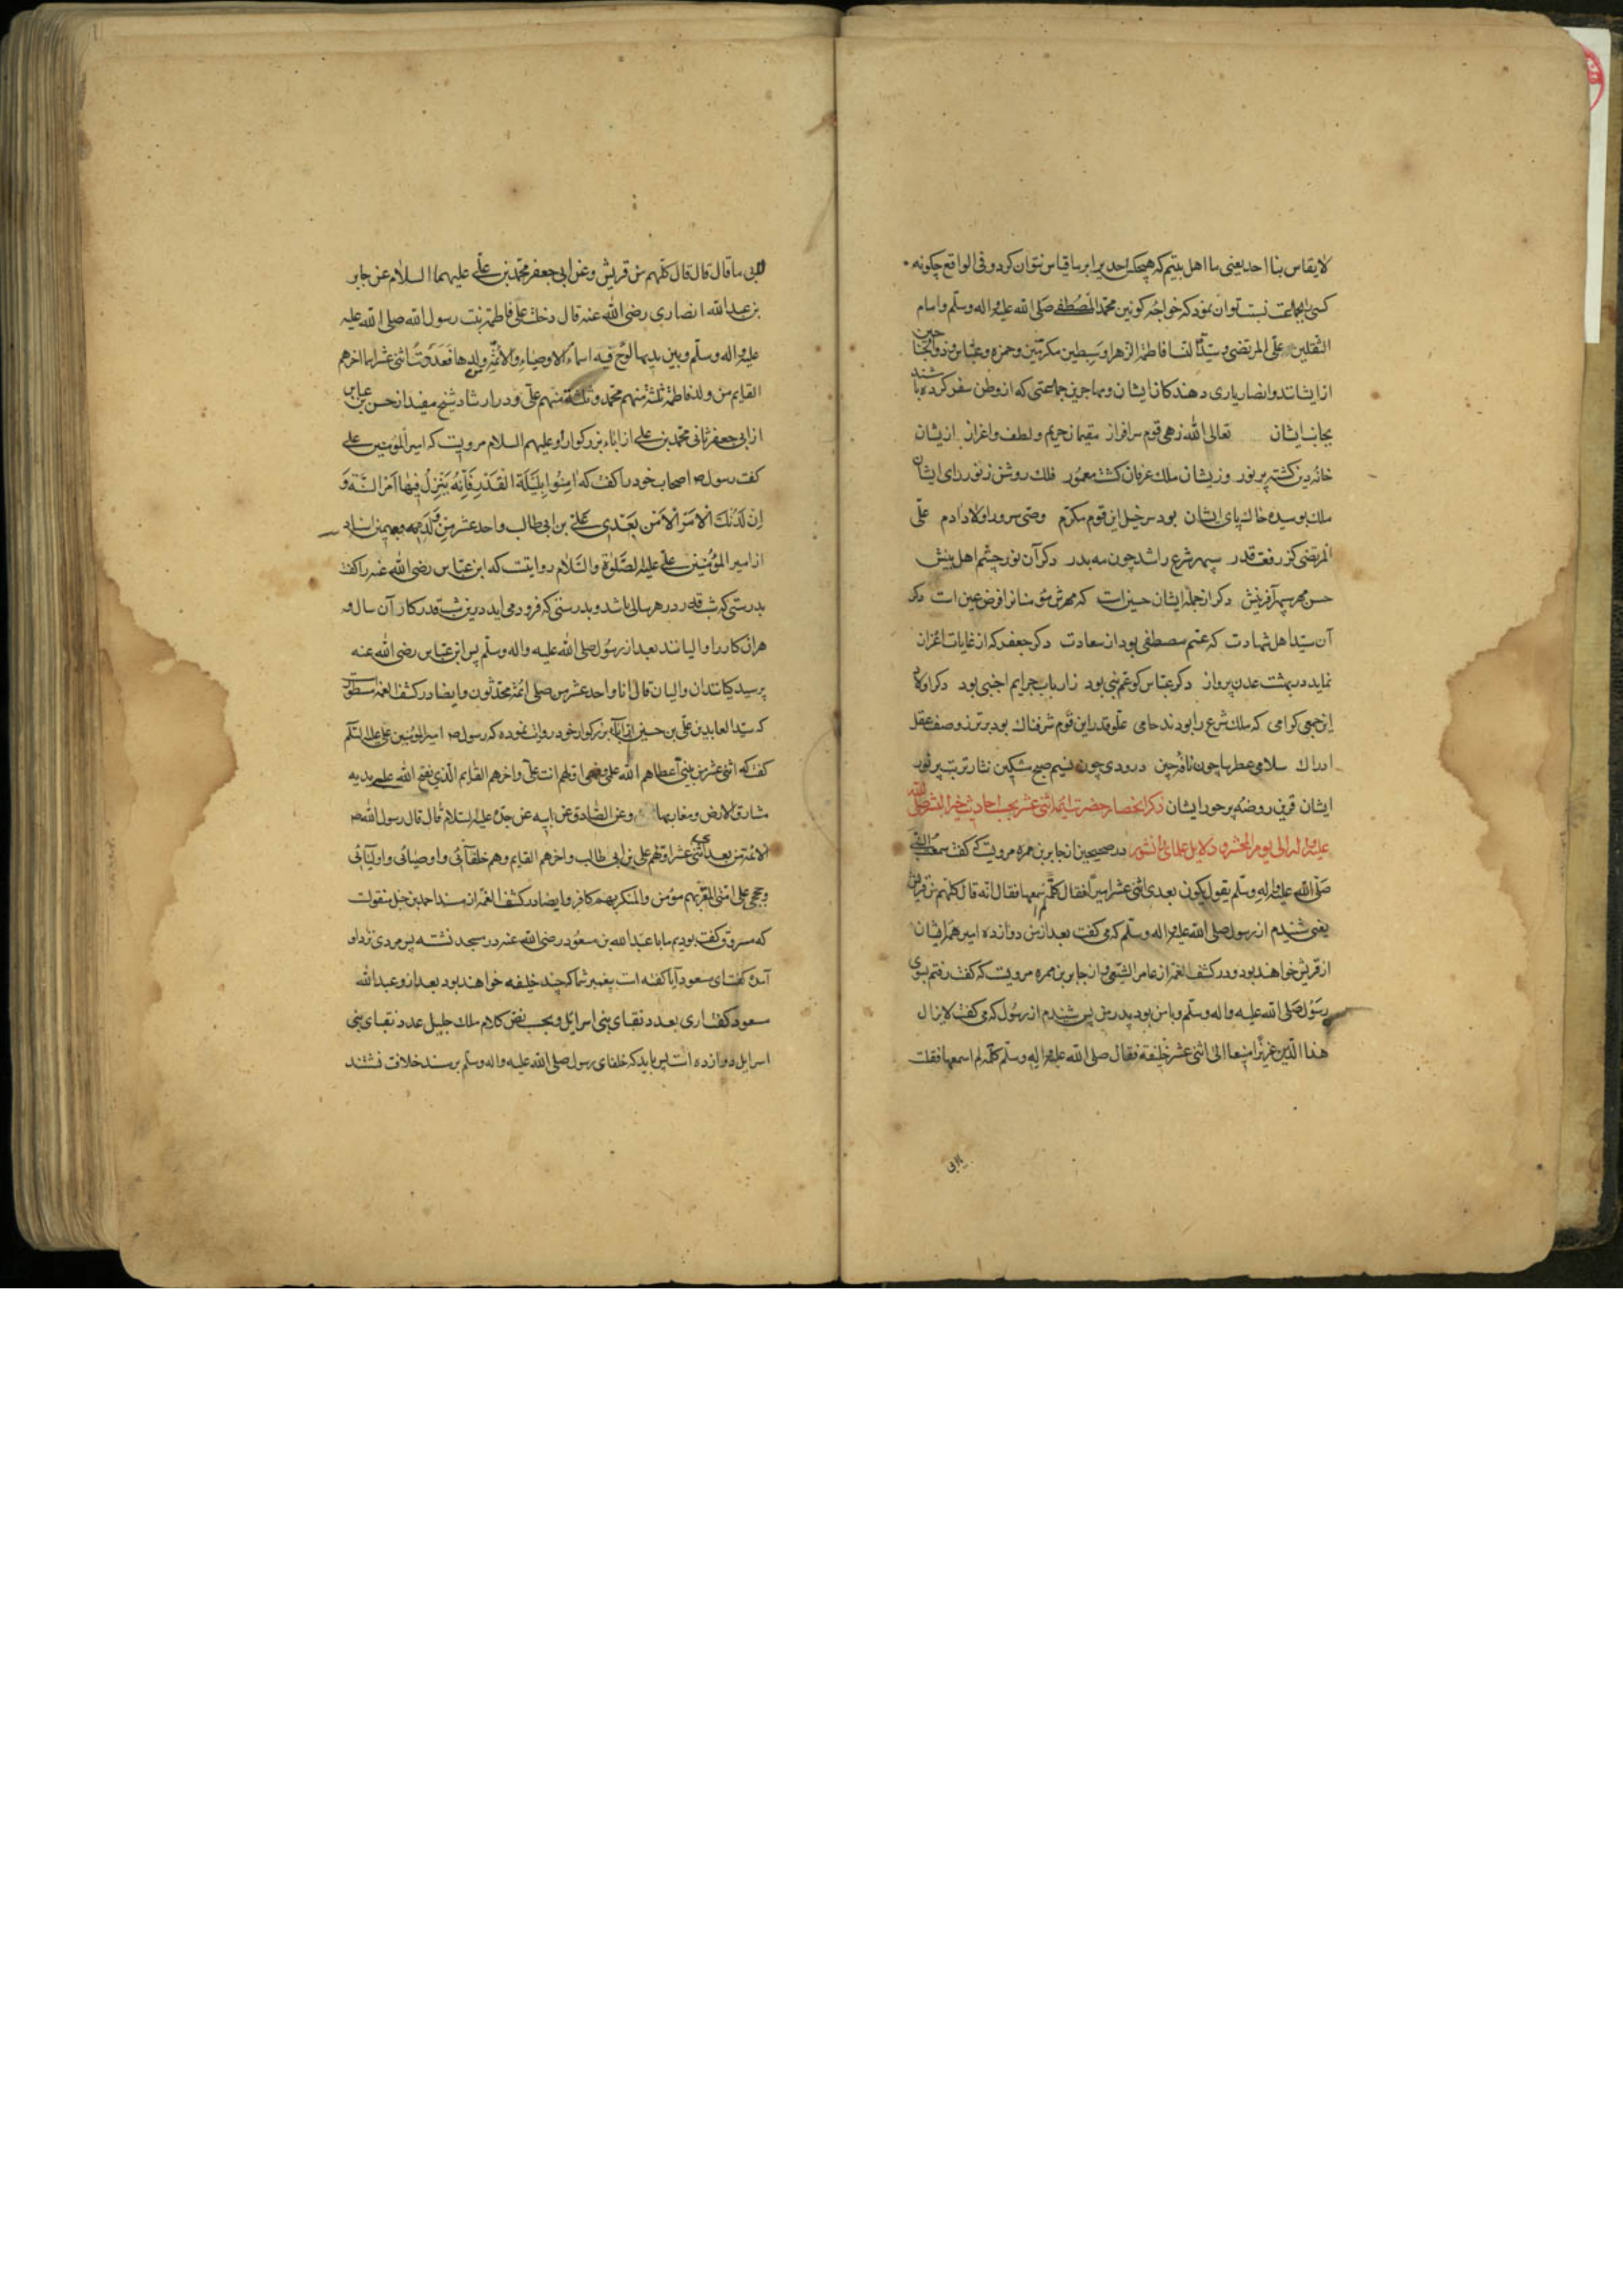 لایقاس بنا احد یعنی ما اهل بیتیم که هیچکس احدیرا برما قیاس نتوان کرد و فی الواقع چکونه
کسی بجماعت نسبت توان نمود که خواجهٔ کونین محمد المصطفی صلی الله علیه واله وسلم وامام
الثقلین علی المرتضی وسیدة النسا فاطمة الزهرا وسبطین مکرمین وحمزه وعباس وذوالجناحین
از ایشانند وانصار یاری دهندکان ایشان ومهاجرین جماعتی که از وطن سفر کرده باشند
بجانب ایشان تعالی الله زهی قوم سرافراز مقیمان حریم ولطف واعزاز ازیشان
خانهٔ دین کشته پرنور وزیشان ملک عرفان کشته معمور فلک روشن زنور رای ایشان
ملک بوسیده خاک پای ایشان بود سرخیل این قوم مکرم وصی سرور اولاد ادم علی
المرتضی کز رفعت قدر سپهر شرع را شد چون مه بدر دکر آن نور چشم اهل بینش
حسن مهر سپهر آفرینش دکر از جملهٔ ایشان حسین است که مهرش مؤمنانرا فرض عین است دکر
آن سید اهل شهادت که عم مصطفی بود از سعادت دکر جعفر که از غایات اعزاز
نماید در بهشت عدن پرواز دکر عباس کو عم نبی بود زارباب جرایم اجنبی بود دکر اولاد
این جمعی کرامی که ملک شرع را بودند حامی علو قدر این قوم شرفناک بود برتر ز وصف عقل
ادراک سلامی عطرسا چون نافهٔ چین درودی چون نسیم صبح مشکین نثار تربت پرنور
ایشان قرین روضهٔ پرحور ایشان ذکر انحصار حضرت ایمه اثنی عشر بحسب احادیث خیر البشر صلی الله
علیه واله الی یوم المحشر و دلایل علمای دانشور در صحیحین از جابر بن سمره مرویست که کفت سمعت النبی
صلی الله علیه واله وسلم یقول یکون بعدی اثنی عشر امیرا فقال کلمة لم اسمعها فقال انه قال کلهم من قریش
یعنی شنیدم از رسول صلی الله علیه واله وسلم که می کفت بعد از من دوازده امیر همه ایشان
از قریش خواهند بود ودر کشف الغمه از عامر الشعبی واز جابر بن سمره مرویست که کفت رفتم بسوی
رسول صلی الله علیه واله وسلم وبامن بود پدر من پس شنیدم از رسول که می کفت لایزال
هذا الدین عزیزا منیعا الی اثنی عشر خلیفة فقال صلی الله علیه واله وسلم کلمة لم اسمعها فقلت
لابی
لابی ما قال قال قال کلهم من قریش وعن ابی جعفر محمد بن علی علیهما السلام عن جابر
بن عبدالله انصاری رضی الله عنه قال دخلت علی فاطمة بنت رسول الله صلی الله علیه
علیه واله وسلم وبین یدیها لوح فیه اسماء الاوصیاء والائمة من ولدها فعددت اثنی عشر اسما اخرهم
القایم من ولد فاطمة ثلثة منهم محمد وثلثة منهم علی ودر ارشاد شیخ مفید از حسن بن عباس
از ابی جعفر ثانی محمد بن علی از اباء بزرکوار او علیهم السلام مرویست که امیر المؤمنین علی
کفت رسول ص اصحاب خود را کفت که امنوا بلیلة القدر فانه ینزل فیها امر السنة و
ان لذلک الامر الامن بعدی علی بن ابی طالب واحد عشر من ولده
از امیر المؤمنین علی علیه الصلوة والسلام روایتست که ابن عباس رضی الله عنه را کفت
بدرستی که شب قدر در هر سالی باشد وبدرستی که فرود می اید درین شب قدر کار آن سال و
هران کار را والیانند بعد از رسول صلی الله علیه واله وسلم پس ابن عباس رضی الله عنه
پرسید کیانتدان والیان قال انا واحد عشر من صلبی ائمة محدثون وایضا در کشف الغمه مسطور است
که سید العابدین علی بن حسین از آباء بزرکوار خود روایت نموده که رسول ص امیر المؤمنین علی علیه السلم
کفت که اثنی عشر من بیتی اعطاهم الله علمی وفهمی اولهم انت یا علی واخرهم القایم الذی یفتح الله علی یدیه
مشارق الارض ومغاربها وعن الصادق عن ابیه عن جده علیه السلام قال قال رسول الله ص
الائمة من بعدی اثنی عشر اولهم علی بن ابی طالب واخرهم القایم وهم خلفائی واوصیائی واولیائی
وحججی علی امتی المقر بهم مؤمن والمنکر بهم کافر وایضا در کشف الغمه از مسند احمد بن حنبل منقولست
که مسروق کفت بودیم ما با عبدالله بن مسعود رضی الله عنه در مسجد نشسته پس مردی نزد او
آمده کفت ای مسعود آیا کفته است پیغمبر شما که چند خلیفه خواهند بود بعد ازو عبدالله
مسعود کفت اری بعدد نقبای بنی اسرائل وبحسب نص کلام ملک جلیل عدد نقبای بنی
اسرایل دوازده است پس باید که خلفای رسول صلی الله علیه واله وسلم برمسند خلافت نشتند